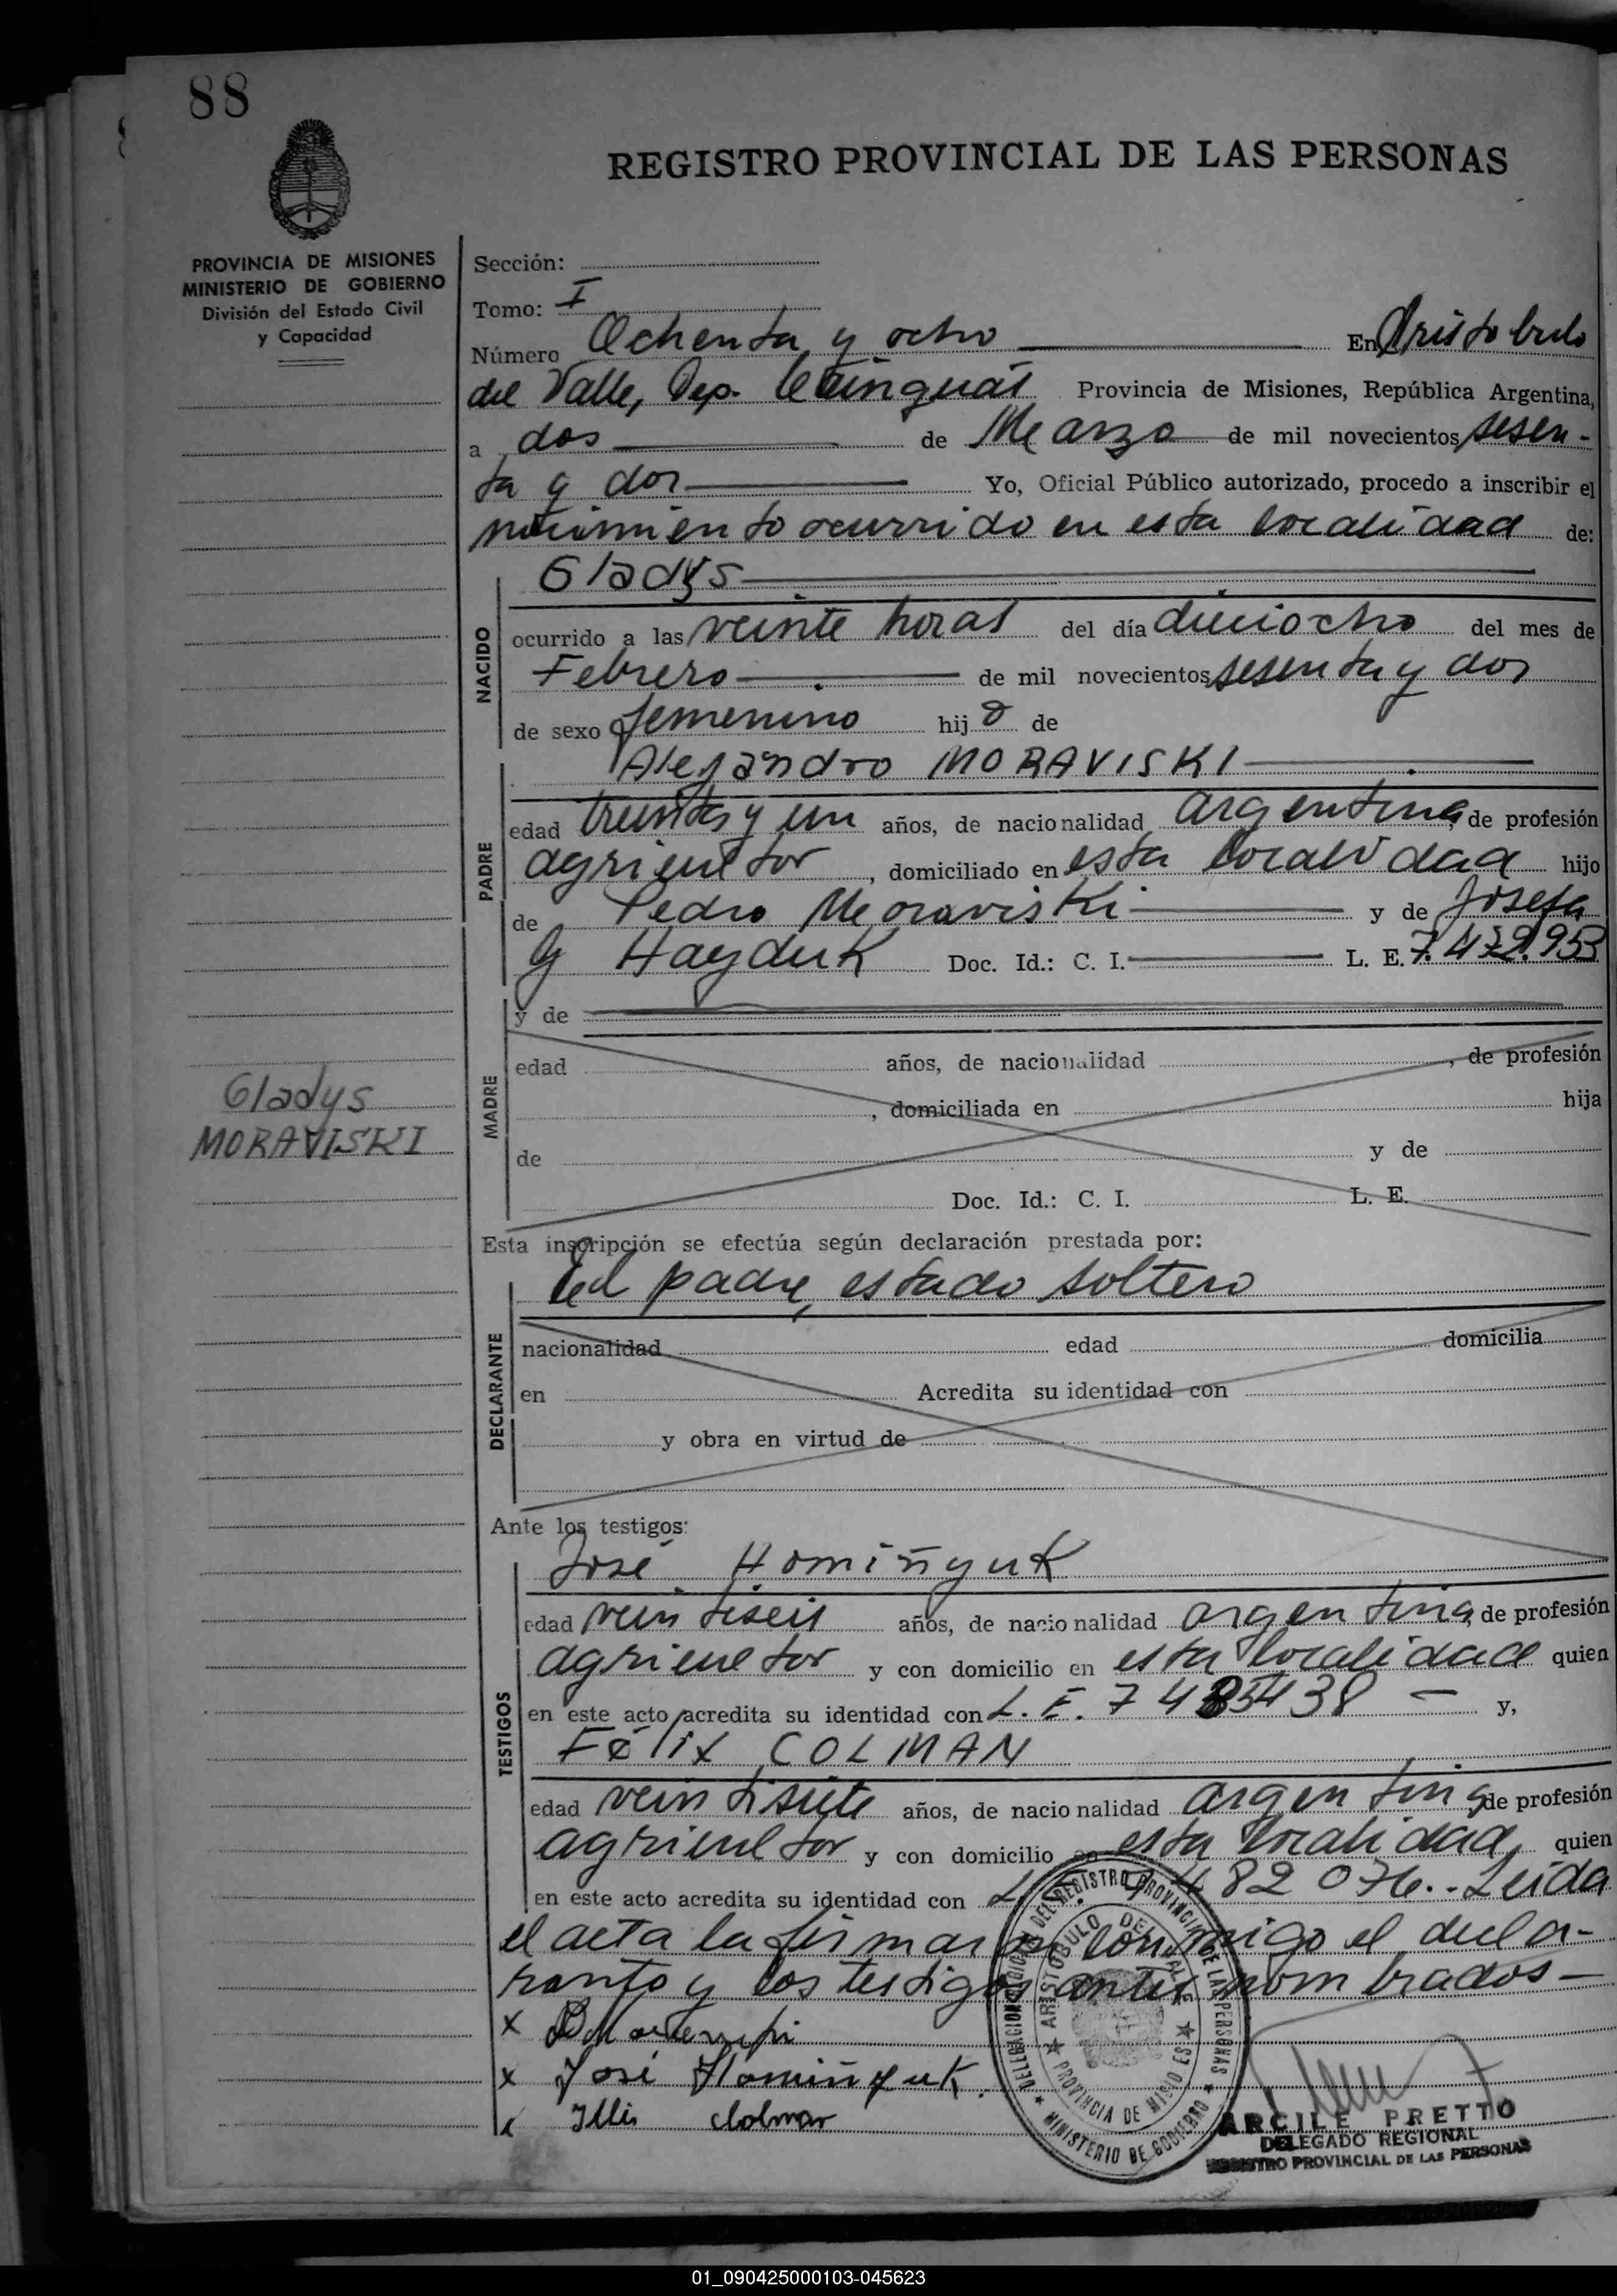 88
REGISTRO PROVINCIAL DE LAS PERSONAS
PROVINCIA DE MISIONES
MINISTERIO DE GOBIERNO
División del Estado Civil
y Capacidad
Sección:
Tomo: I
Número Ochenta y ocho En Aristobulo
del Valle, Dep. Cainguás Provincia de Misiones, República Argentina,
a dos de Marzo de mil novecientos sesen-
ta y dos Yo, Oficial Público autorizado, procedo a inscribir el
nacimiento ocurrido en esta localidad de:
NACIDO
Gladys
ocurrido a las veinte horas del día dieciocho del mes de
Febrero de mil novecientos sesenta y dos
de sexo femenino hija de
PADRE
Alejandro MORAVISKI
edad treinta y un años, de nacionalidad argentina, de profesión
agricultor, domiciliado en esta localidad hijo
de Pedro Moraviski y de Josefa
G Hayduk Doc. Id.: C. I. L. E. 7.472.953
MADRE
y de
edad años, de nacionalidad , de profesión
, domiciliada en hija
de y de
Doc. Id.: C. I. L. E.
Gladys
MORAVISKI
Esta inscripción se efectúa según declaración prestada por:
DECLARANTE
El padre, estado soltero
nacionalidad edad domicilia
en Acredita su identidad con
y obra en virtud de
Ante los testigos:
TESTIGOS
José Homiñyuk
edad veintiseis años, de nacionalidad argentina, de profesión
agricultor y con domicilio en esta localidad quien
en este acto acredita su identidad con L. E. 7 4 438 y,
Félix COLMAN
edad veintisiete años, de nacionalidad argentina, de profesión
agricultor y con domicilio en esta localidad, quien
en este acto acredita su identidad con 482 076.- Leida
el acta la firman conmigo el decla-
rante y los testigos antes nombrados
x
x José Homiñyuk
x Colman
DELEGACION DEL REGISTRO PROVINCIAL DE LAS PERSONAS
MINISTERIO DE GOBIERNO
ARISTOBULO DEL VALLE
PROVINCIA DE MISIONES
ARCILE PRETTO
DELEGADO REGIONAL
REGISTRO PROVINCIAL DE LAS PERSONAS
01_090425000103-045623